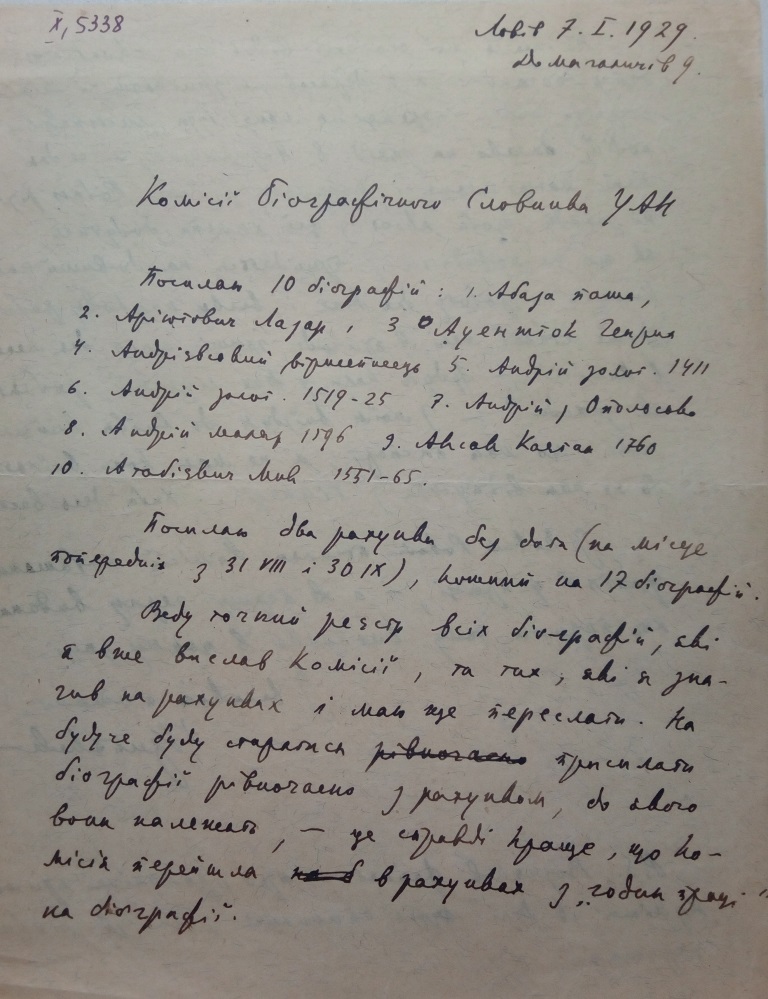 X, 5338
Львів 7. I. 1929.
Домагаличів 9.
Комісії біографічного Словника УАН
Посилаю 10 біографій: 1. Абаза паша,
2. Арістович Лазар, 3 Ауеншток Генрик
4. Андрієвський 5. Андрій золот. 1411
6. Андрій золот. 1519-25 7. Андрій,
8. Андрій маляр 1596 9. Аксак Каєтан 1760
10. Атабієвич Мик 1551-65.
Посилаю два рахунки без дати (на місце
попередніх з 31 VIII і 30 IX), кожний на 17 біографій.
Веду точний реєстр всіх біографій, які
я вже вислав Комісії, та тих, які я зна-
чив на рахунках і маю ще переслати. На
будуче буду старатися рівночасно присилати
біографії рівночасно з рахунком, до якого
вони належать, — це справді краще, що Ко-
місія перейшла в рахунках з „годин праці"
на біографії.